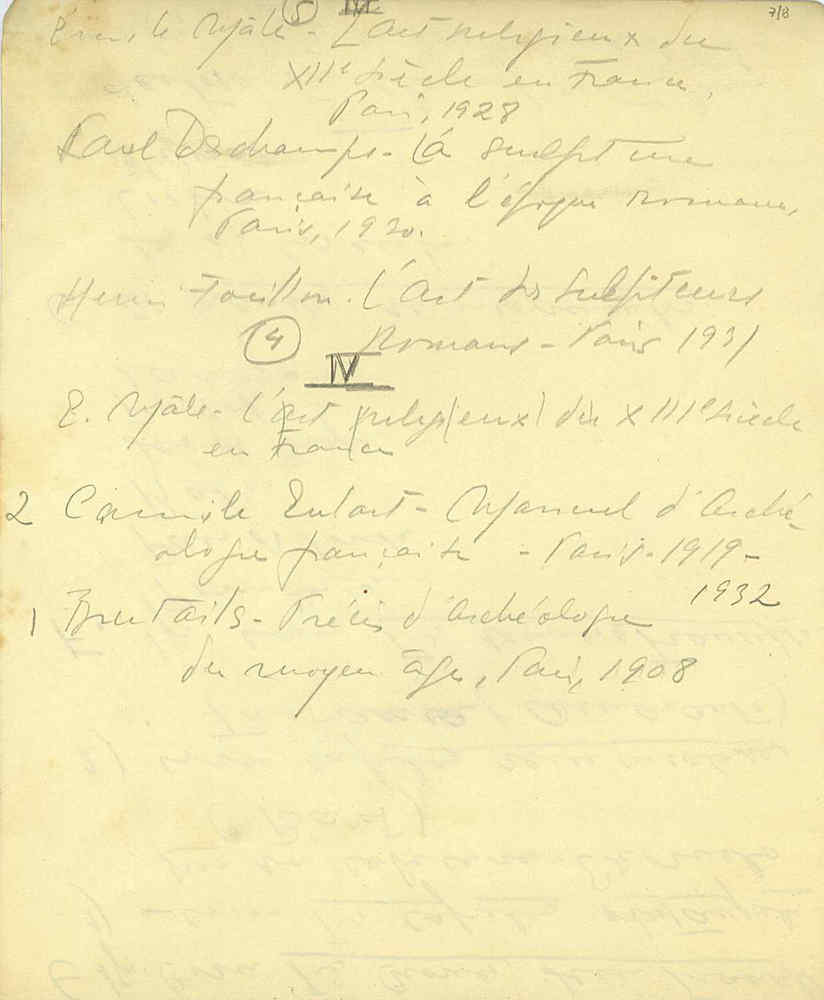 7/8
5 IV
Émile Mâle - L'art religieux du
XIIe siècle en France,
Paris, 1928
Paul Deschamps - La sculpture
française à l'époque romane,
Paris, 1930.
Henri Focillon. L'art des sculpteurs
romans - Paris 1931
4
IV
E. Mâle - L'art religieux du XIIIe siècle
en France
2 Camile Enlart - Manuel d'Arché-
ologie française - Paris - 1919 -
1932
1 Brutails - Précis d'Archéologie
du moyen âge, Paris, 1908